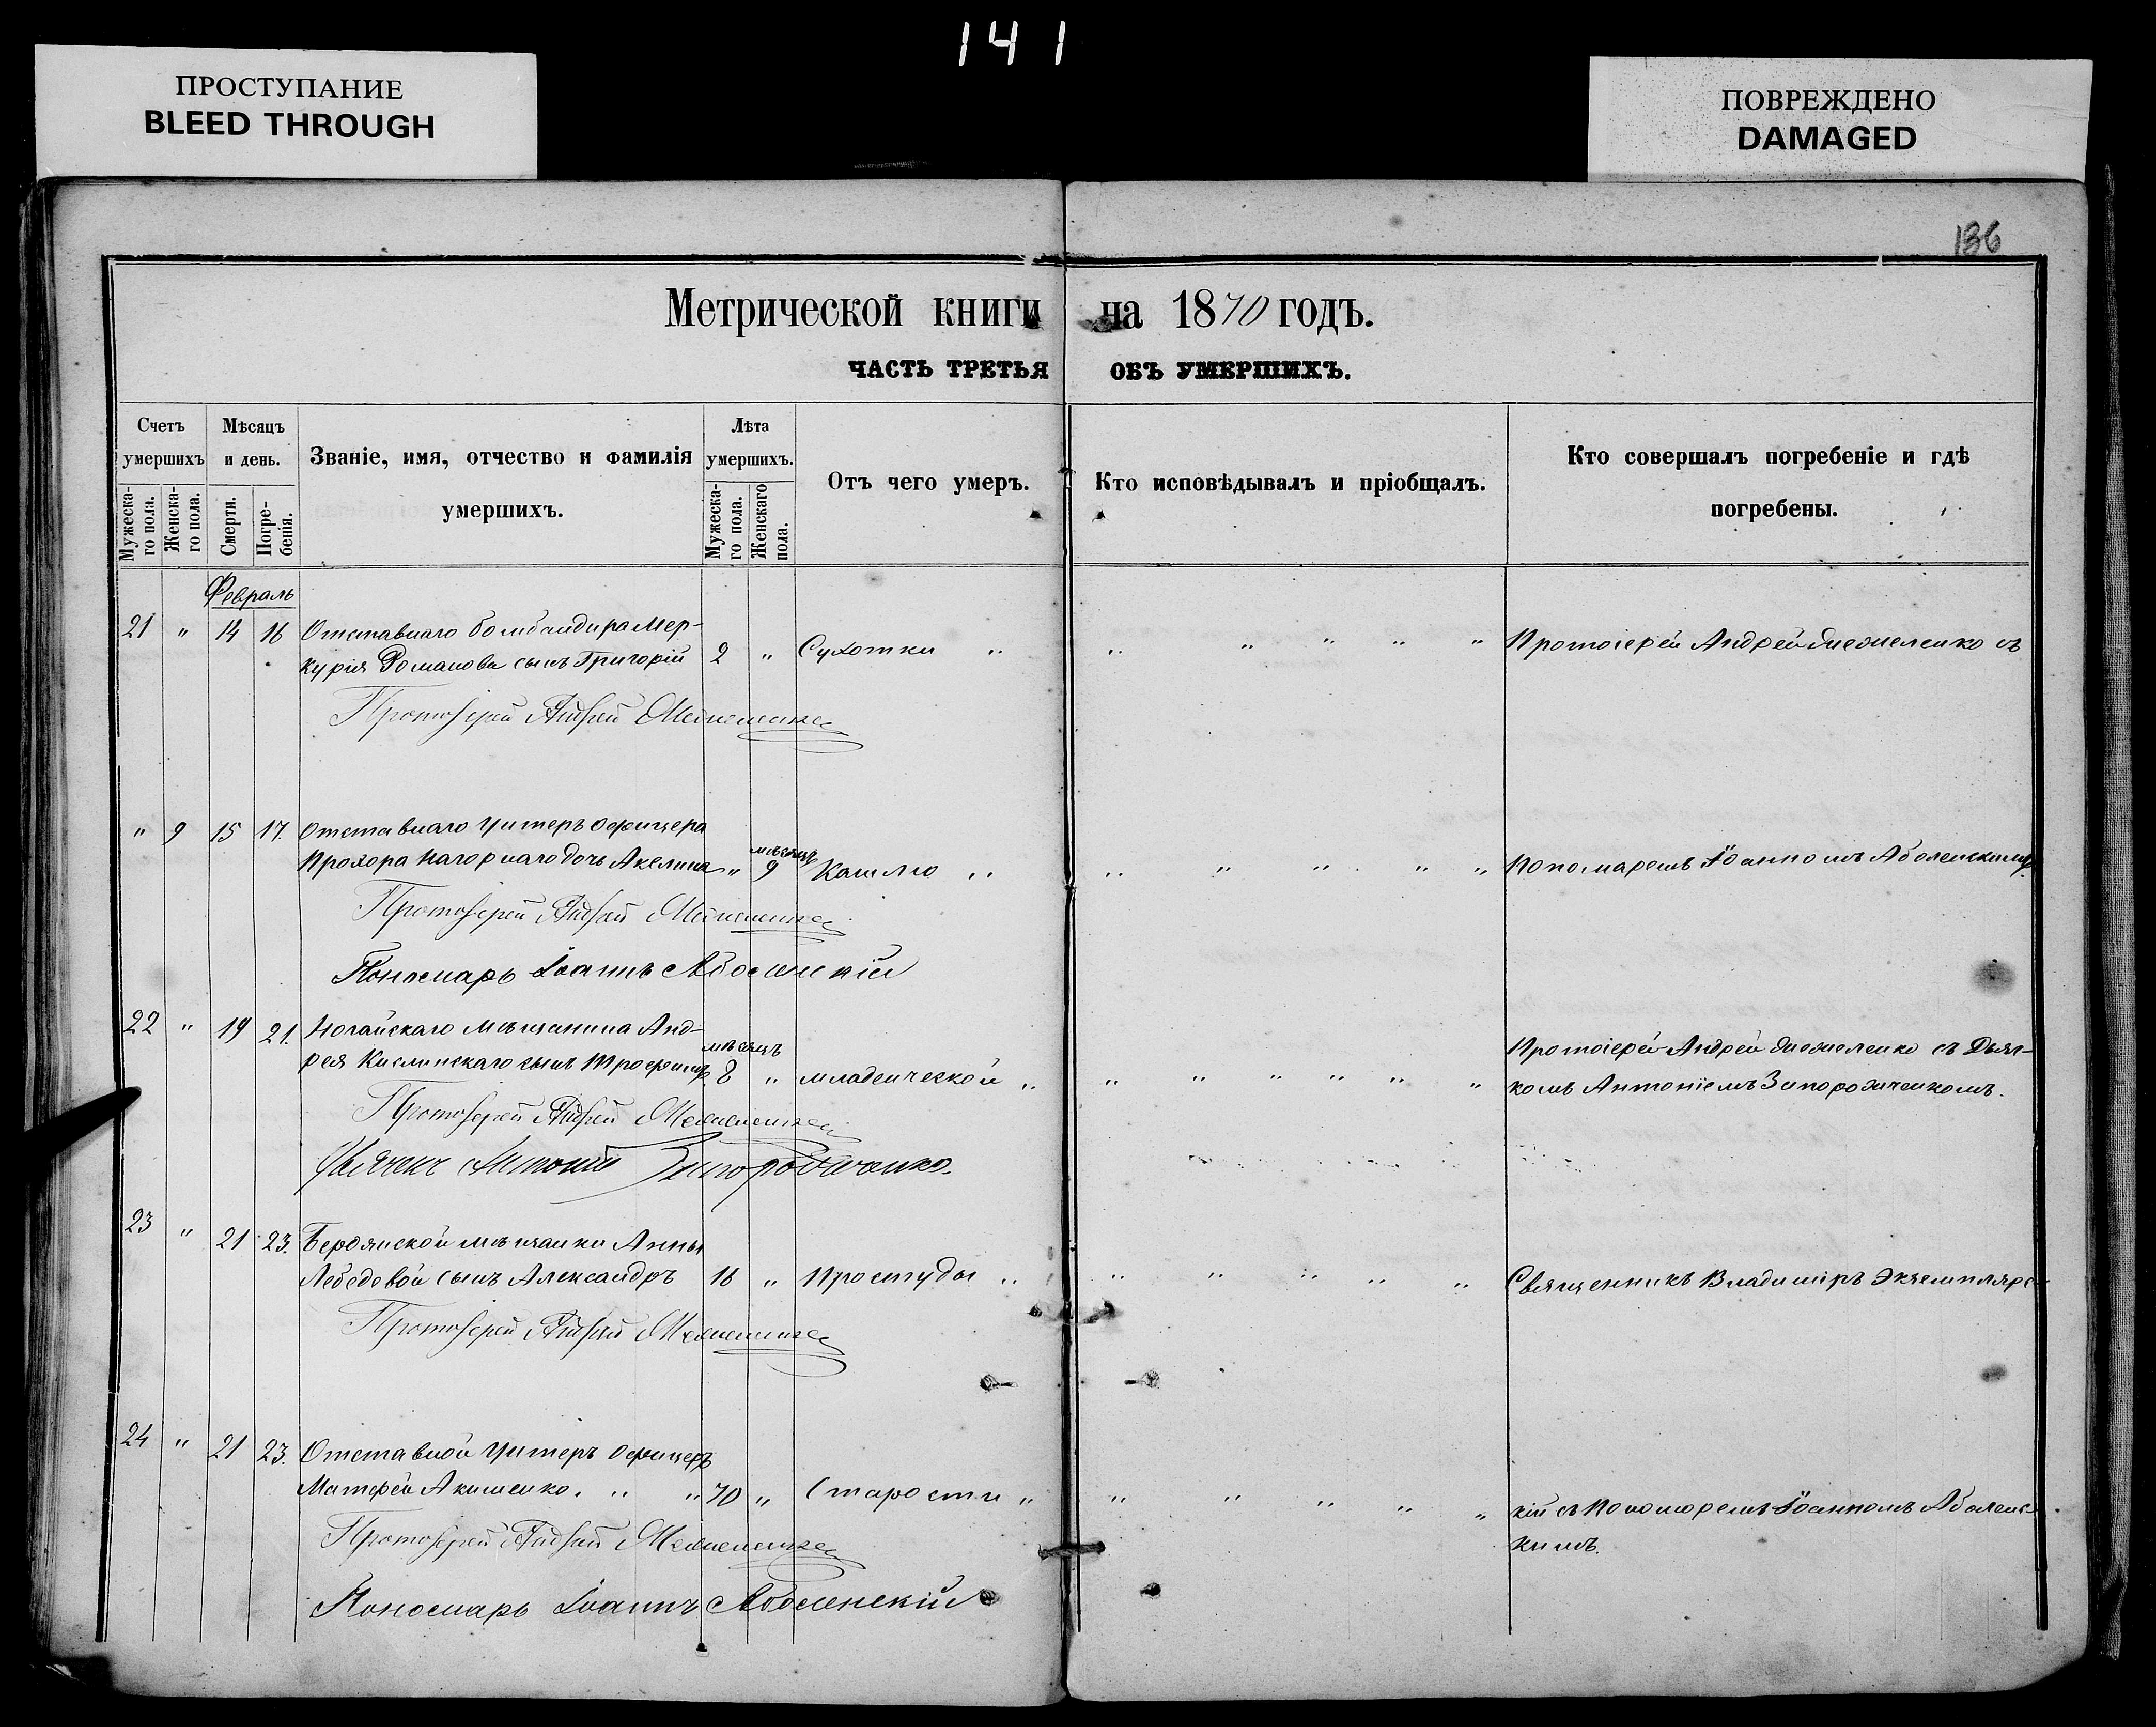 141
ПРОСТУПАНИЕ
BLEED THROUGH
ПОВРЕЖДЕНО
DAMAGED
136
Метрической книги на 1870 годъ.
ЧАСТЬ ТРЕТЬЯ ОБЪ УМЕРШИХЪ.
Счетъ умершихъ
Мужеска-го пола.
Женска-го пола.
Мѣсяцъ и день.
Смерти.
Погре-бенія.
Званіе, имя, отчество и фамилія
умершихъ.
Лѣта умершихъ.
Мужеска-го пола.
Женскаго пола.
Отъ чего умеръ.
Кто исповѣдывалъ и пріобщалъ.
Кто совершалъ погребеніе и гдѣ
погребены.
Февраль
21 " 14 16 Отставнаго бомбандира Мер-
курія Романова сынъ Григорій 2 " Сухотки " " " " " " Протоіерей Андрей съ
Протоіерей Андрей
" 9 15 17. Отставнаго Унтеръ Офицера
Прохора Нагорнаго дочь Акелина " мѣсяцъ 9 Кашлю " " " " " " Пономаремъ Іоанномъ Аболенскимъ.
Протоіерей Андрей
Пономарь Іоаннъ Аболенскій
22 " 19 21. Ногайскаго Мѣщанина Анд-
рея Кислинскаго сынъ Трофимъ мѣсяцъ 8 " младенческой " " " " " " "
Протоіерей Андрей съ Дьяч-
комъ Антоніемъ Запорожченкомъ.
Протоіерей Андрей
Дьячекъ Антоній Запорожченко.
23 " 21 23. Бердянской мѣщанки Анны
Лебедевой сынъ Александръ 16 " Простуды " " " " " " Священникъ Владиміръ Экземплярс-
Протоіерей Андрей
24 " 21 23. Отставной Унтеръ Офицеръ
Матфей Акименко. " " 70 " Старости " " " " " "
кій съ Пономоремъ Іоанномъ Аболенс-
кимъ.
Протоіерей Андрей
Пономарь Іоаннъ Аболенскій